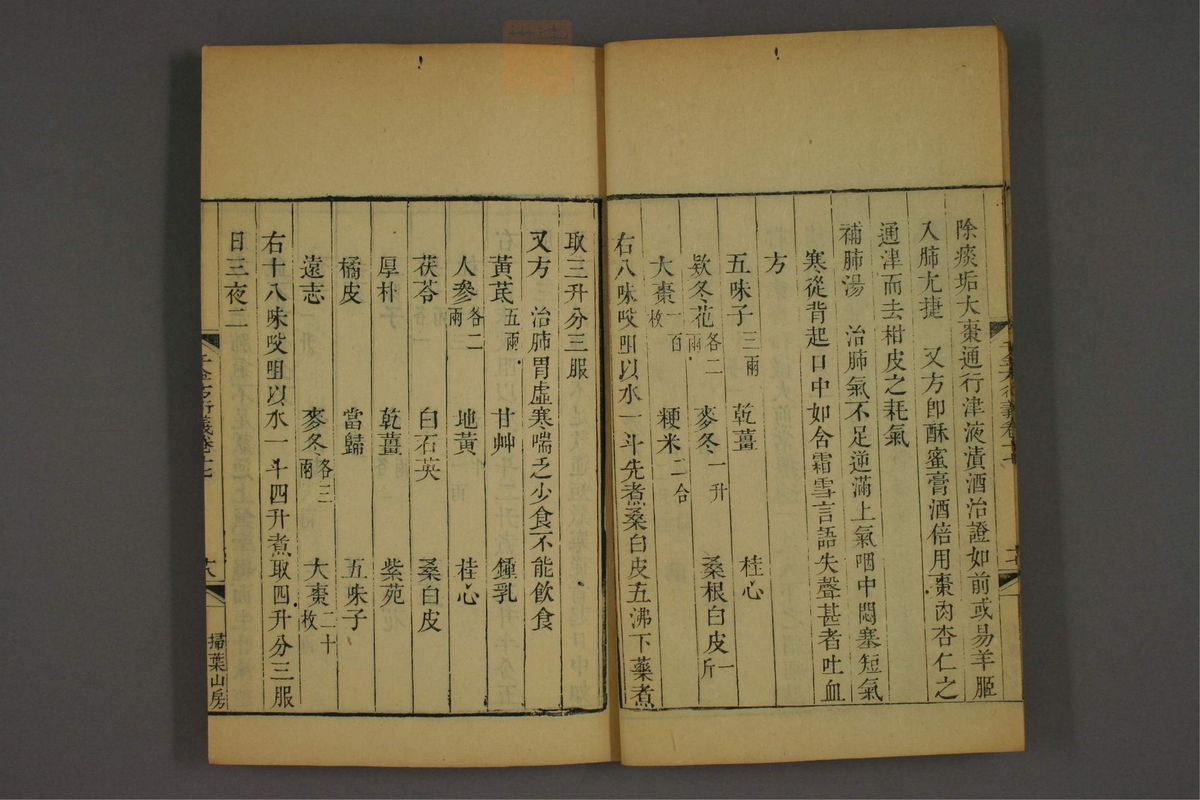 除痰垢大棗通行津液漬酒治證如前或易羊脂
入肺尤捷　又方卽酥蜜膏酒倍用棗肉杏仁之
通津而去柑皮之耗氣
補肺湯　治肺氣不足逆滿上氣咽中悶塞短氣
寒從背起口中如含霜雪言語失聲甚者吐血
方
五味子三兩　乾薑　桂心
欵冬花各二兩　麥冬一升　桑根白皮一斤
大棗一百枚　粳米二合
右八味㕮咀以水一斗先煮桑白皮五沸下藥煮
取三升分三服
又方　治肺胃虛寒喘乏少食不能飲食
黃芪五兩　甘艸　鍾乳
人參各二兩　地黃　桂心
茯苓　白石英　桑白皮
厚朴　乾薑　紫苑
橘皮　當歸　五味子
遠志　麥冬各三兩　大棗二十枚
右十八味㕮咀以水一斗四升煮取四升分三服
日三夜二
掃葉山房